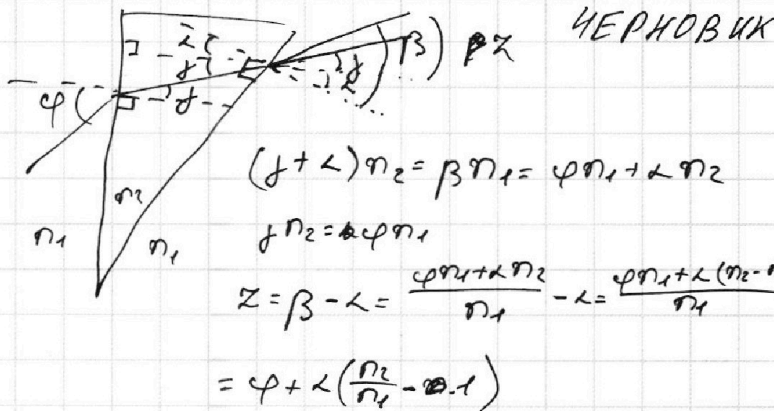 ЧЕРНОВИК
α γ γ α β Z
φ γ
n₂
n₁ n₁
(γ + α) n₂ = β n₁ = φ n₁ + α n₂
γ n₂ = φ n₁
Z = β - α = (φ n₁ + α n₂) / n₁ - α = (φ n₁ + α (n₂ -) / n₁
= φ + α (n₂/n₁ - 1)